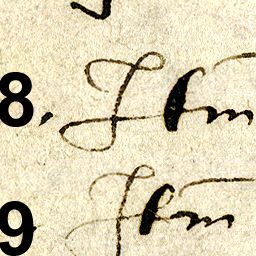 8. Itm
9 Itm